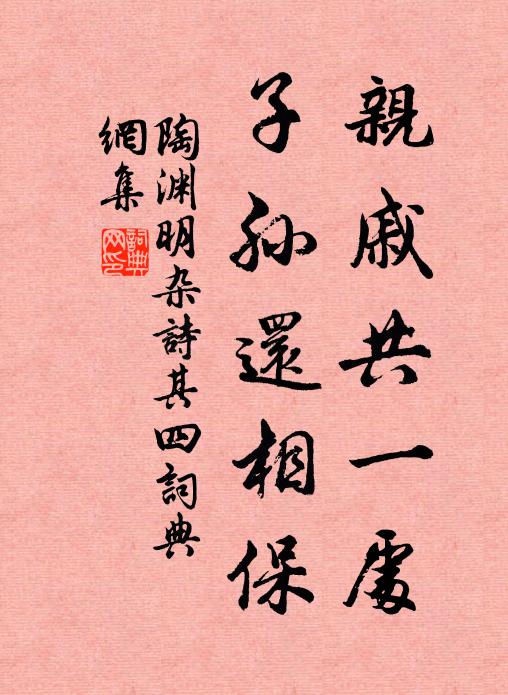 親戚共一處
子孫還相保
陶渊明杂詩其四詞典
網集
詞典網印